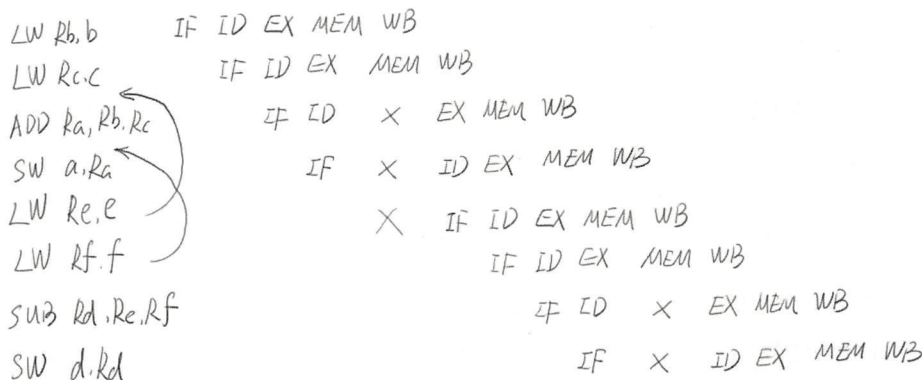 LW Rb,b IF ID EX MEM WB
LW Rc.c IF ID EX MEM WB
ADD Ra,Rb.Rc IF ID X EX MEM WB
SW a,Ra IF X ID EX MEM WB
LW Re,e X IF ID EX MEM WB
LW Rf.f IF ID EX MEM WB
SUB Rd.Re,Rf IF ID X EX MEM WB
SW d.Rd IF X ID EX MEM WB